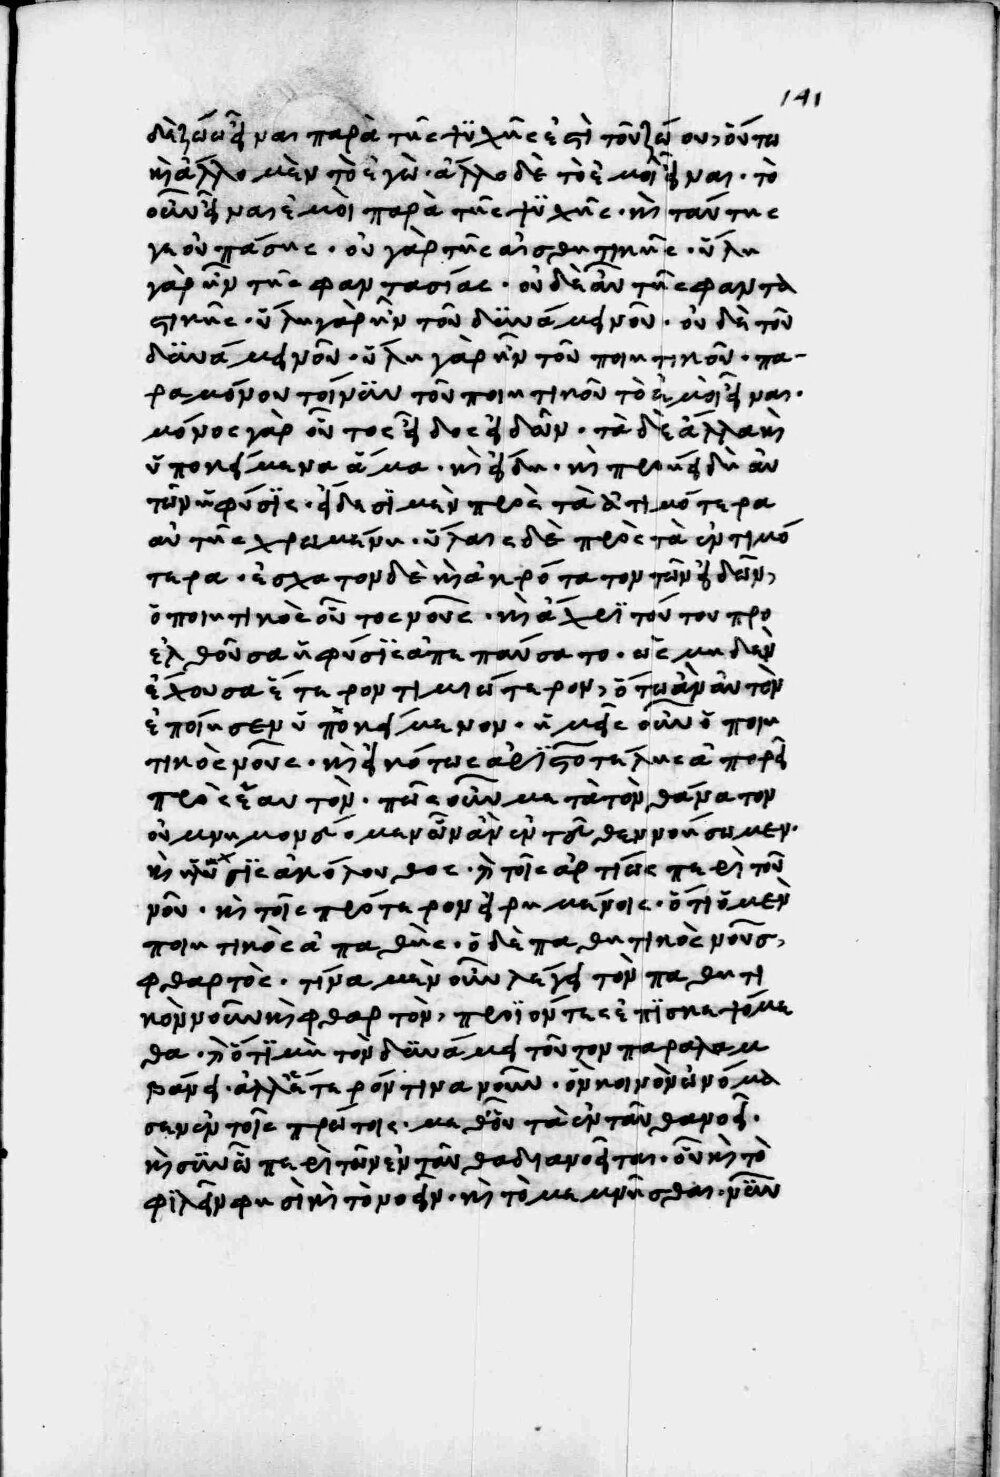 141
δὲ ζώω εἶναι παρὰ τῆς ψυχῆς ἐστὶ τοῦ ζώου, οὕτω
καὶ ἄλλο μὲν τὸ ἐγώ· ἄλλο δὲ τὸ ἐμοὶ εἶναι· τὸ
οὖν εἶναι ἐμοὶ παρὰ τῆς ψυχῆς· καὶ ταύτης
γε οὐ πάσης· οὐ γὰρ τῆς αἰσθητικῆς· ὕλη
γὰρ ἦν τῆς φαντασίας· οὐδὲ αὖ τῆς φαντα
στικῆς· ὕλη γὰρ ἦν τοῦ δυνάμει νοῦ· οὐδὲ τοῦ
δυνάμει νοῦ· ὕλη γὰρ ἦν τοῦ ποιητικοῦ· πα-
ρα μόνου τοίνυν τοῦ ποιητικοῦ τὸ ἐμοὶ εἶναι·
μόνος γὰρ οὗτος εἶδος εἰδῶν· τὰ δὲ ἄλλα καὶ
ὑποκείμενα ἅμα· καὶ εἴδη· καὶ προήει δὴ αὐ
τῶν ἡ φύσις· εἴδεσι μὲν πρὸς τὰ ἀτιμότερα
αὐτῆς χρωμένη· ὕλαις δὲ πρὸς τὰ ἐντιμό
τερα· ἔσχατον δὲ καὶ ἀκρότατον τῶν εἰδῶν,
ὁ ποιητικὸς οὗτος νοῦς· καὶ ἄχρι τούτου προ
ελθοῦσα ἡ φύσις ἀπεπαύσατο· ὡς μηδὲν
ἔχουσα ἕτερον τιμιώτερον, ὅτω ἂν αὐτὸν
ἐποίησεν ὑποκείμενον· ἡμεῖς οὖν ὁ ποιη
τικὸς νοῦς· καὶ εἰκότως ἀριστοτέλης ἀπορεῖ
πρὸς ἑαυτόν· πῶς οὖν μετὰ τὸν θάνατον
οὐ μνημονεύομεν ὧν ἂν ἐν τῶ νοήσωμεν·
καὶ ἡ λύσις ἀκόλουθος· καὶ τοῖς ἀρτίως περὶ τοῦ
νοῦ· καὶ τοῖς πρότερον εἰρημένοις· ὅτι ὁ μὲν
ποιητικὸς ἀπαθής· ὁ δὲ παθητικὸς νοῦς,
φθαρτός· τίνα μὲν οὖν λέγει τὸν παθητι
κὸν νοῦν καὶ φθαρτόν, προϊόντες ἐπισκεψόμε
θα· καὶ ὅτι μὴ τὸν δυνάμει τοῦτον παραλαμ
βάνει· ἀλλ' ἕτερόν τινα νοῦν· ὃν κοινὸν ὠνόμα
σεν ἐν τοῖς πρώτοις· μεθ' οὗ τὰ ἐνταῦθα νοεῖ·
καὶ σύνεω περὶ τῶν ἐνταῦθα διανοεῖται· οὗ καὶ τὸ
φιλεῖν φησὶ καὶ τὸ νοεῖν· καὶ τὸ μεμνῆσθαι· νῦν